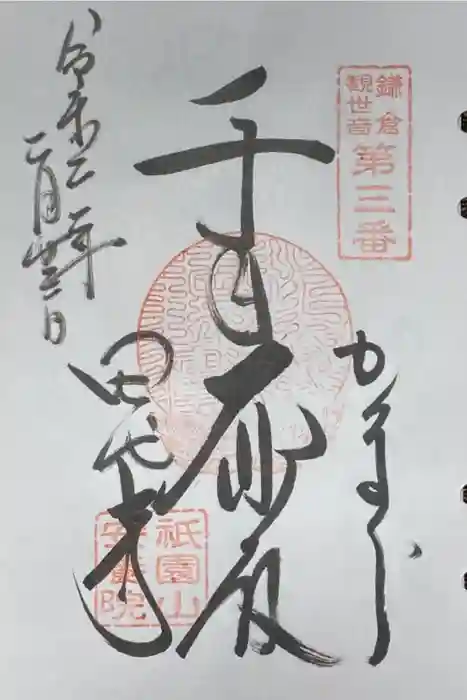 鎌倉
観世音
第三番
かまくら
千手
田代寺
祇園山
安養院
令和二年
二月廿三日